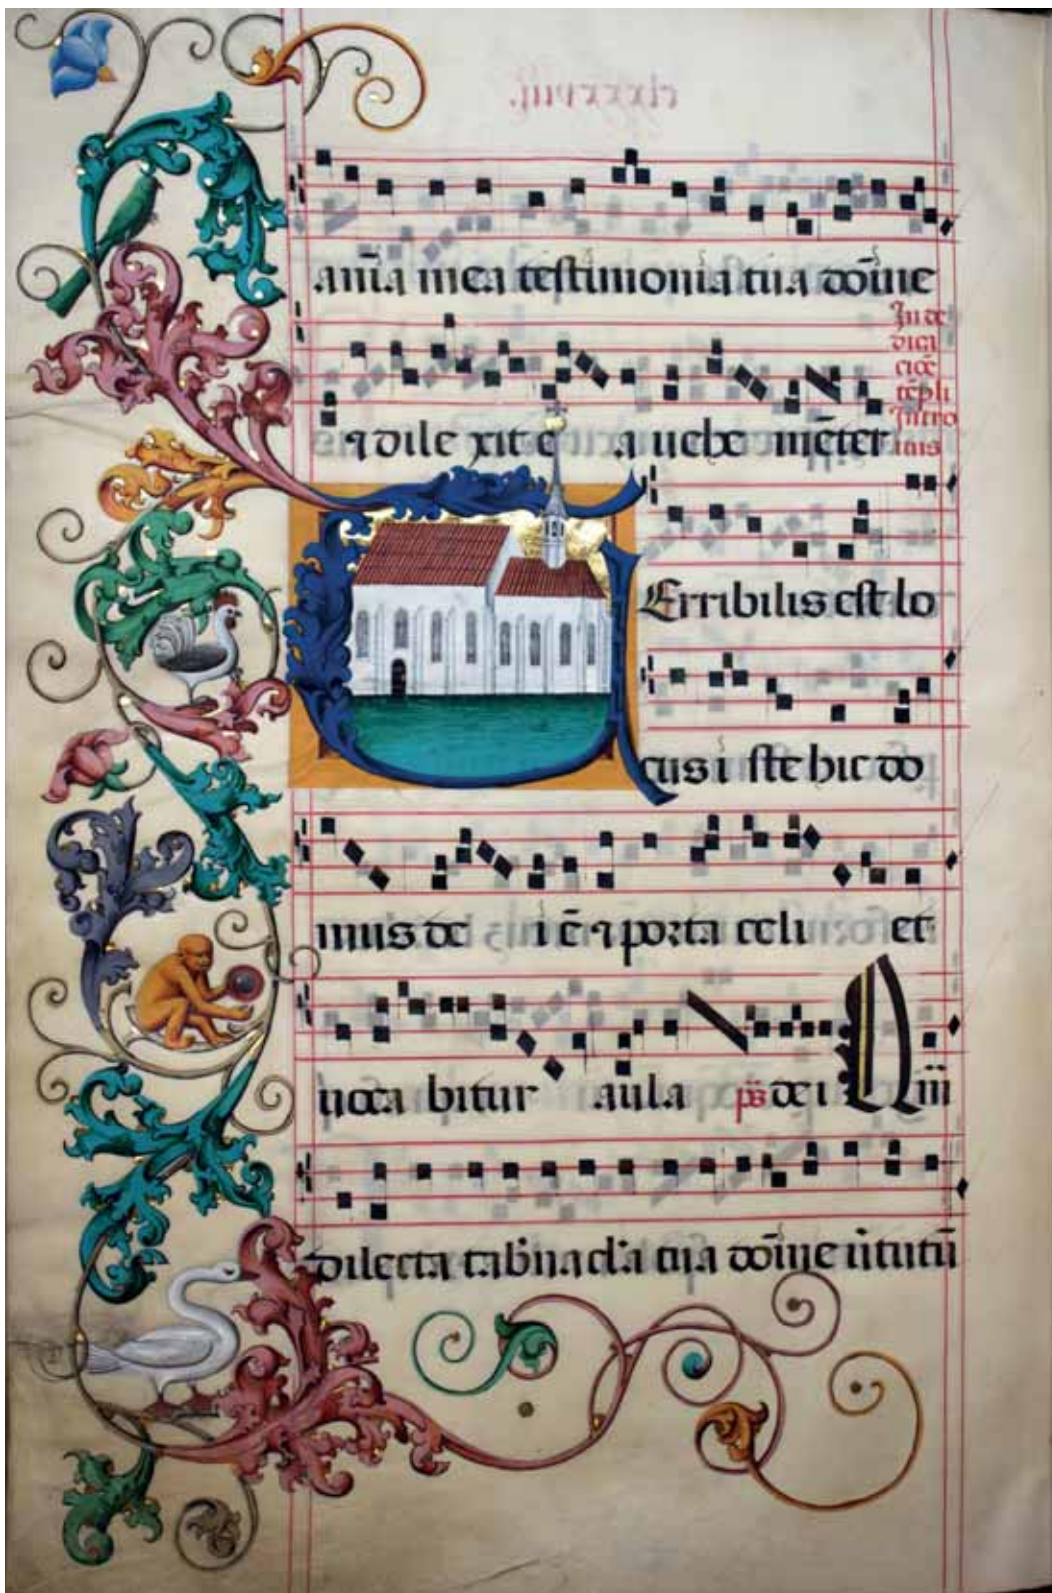 ani̅a mea testimonia tua do̅ine
In de
dica
cio̅e
te̅pli
Intro
itus
⁊ dile xit e a uehe me̅ter
TErribilis est lo
cus i ste hic do
mus de i e̅ ⁊ porta celi et
uoca bitur aula ps̅ de i Q
dilecta tab'nac'la tua do̅ine u̅tutu̅